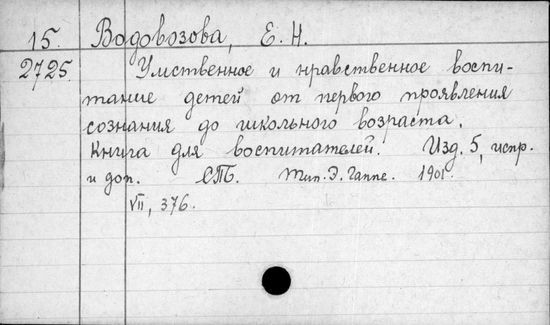 15. Водовозова, Е. Н.
2725. Умственное и нравственное воспи-
тание детей от первого проявления
сознания до школьного возраста.
Книга для воспитателей. Изд. 5, испр.
и доп. СПб. Тип. Э. Гаппе. 1901.
VII, 376.